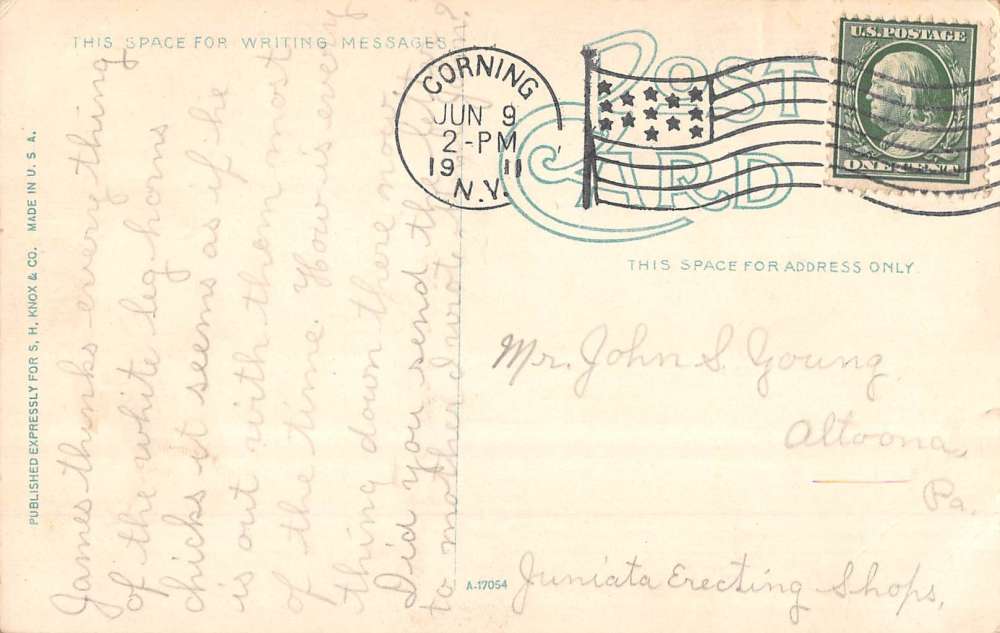 THIS SPACE FOR WRITING MESSAGES
James thinks everre thing
of the white leg horns
chicks it seems as if he
is out with them most
of the time. How is every
thing down there now.
Did you send the
to mother I wrote
PUBLISHED EXPRESSLY FOR S. H. KNOX & CO. MADE IN U. S. A.
CORNING
JUN 9
2-PM
19 11
N.Y.
POST
CARD
U.S. POSTAGE
ONE CENT
THIS SPACE FOR ADDRESS ONLY.
Mr. John S. Young
Altoona,
Pa.
Juniata Erecting Shops,
A-17054